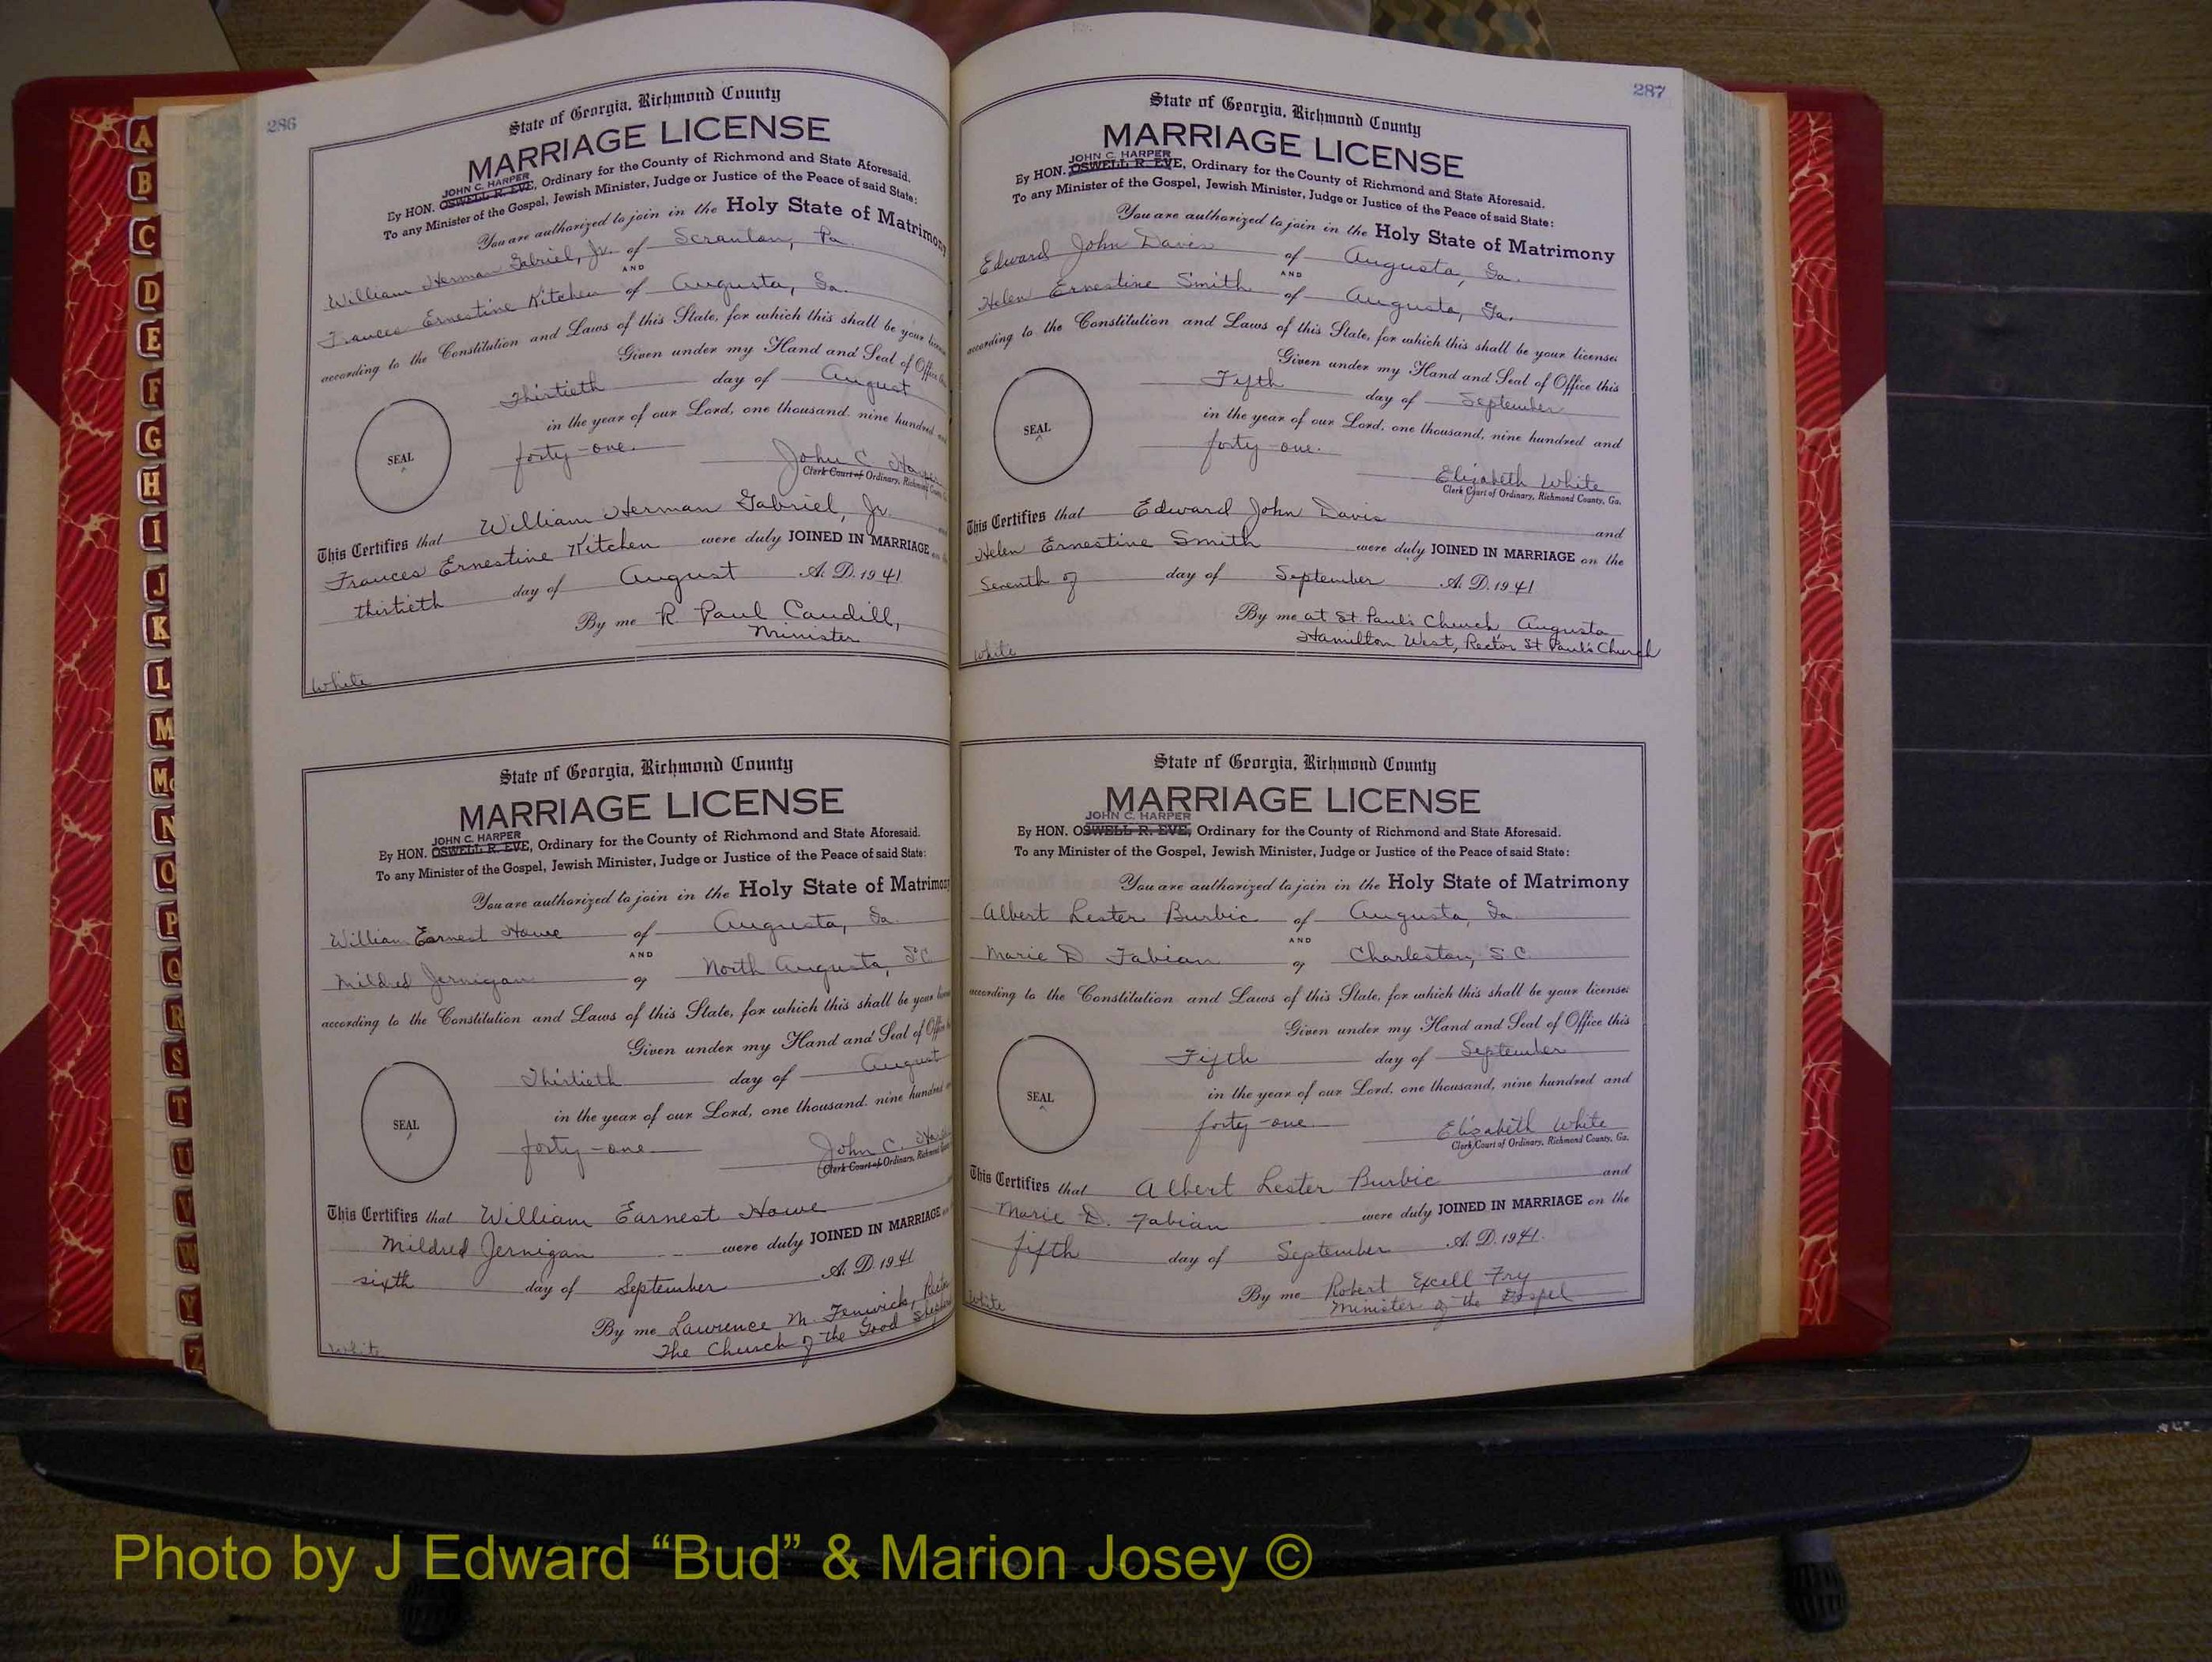 286
State of Georgia, Richmond County
MARRIAGE LICENSE
JOHN C. HARPER
By HON. OSWELL R. EVE, Ordinary for the County of Richmond and State Aforesaid.
To any Minister of the Gospel, Jewish Minister, Judge or Justice of the Peace of said State:
You are authorized to join in the Holy State of Matrimony
William Herman Gabriel, Jr. of Scranton, Pa.
AND
Frances Ernestine Kitchen of Augusta, Ga.
according to the Constitution and Laws of this State, for which this shall be your
Given under my Hand and Seal of Office
Thirtieth day of August
in the year of our Lord, one thousand, nine hundred
SEAL
forty-one.
John C. Harper
Clerk Court of Ordinary, Richmond
This Certifies that William Herman Gabriel, Jr.
Frances Ernestine Kitchen were duly JOINED IN MARRIAGE
thirtieth day of August A. D. 1941
By me R Paul Caudill,
Minister
White
State of Georgia, Richmond County
MARRIAGE LICENSE
JOHN C. HARPER
By HON. OSWELL R. EVE, Ordinary for the County of Richmond and State Aforesaid.
To any Minister of the Gospel, Jewish Minister, Judge or Justice of the Peace of said State:
You are authorized to join in the Holy State of Matrimony
William Earnest Howe of Augusta, Ga.
AND
Mildred Jernigan of North Augusta, S.C.
according to the Constitution and Laws of this State, for which this shall be your
Given under my Hand and Seal of Office
Thirtieth day of August
in the year of our Lord, one thousand, nine hundred
SEAL
forty-one
John C. Harper
Clerk Court of Ordinary, Richmond
This Certifies that William Earnest Howe
Mildred Jernigan were duly JOINED IN MARRIAGE
sixth day of September A. D. 1941
By me Lawrence M. Fenwick, Rector
The Church of the Good Shepherd
White
287
State of Georgia, Richmond County
MARRIAGE LICENSE
JOHN C. HARPER
By HON. OSWELL R. EVE, Ordinary for the County of Richmond and State Aforesaid.
To any Minister of the Gospel, Jewish Minister, Judge or Justice of the Peace of said State:
You are authorized to join in the Holy State of Matrimony
Edward John Davis of Augusta, Ga.
AND
Helen Ernestine Smith of Augusta, Ga.
according to the Constitution and Laws of this State, for which this shall be your license:
Given under my Hand and Seal of Office this
Fifth day of September
in the year of our Lord, one thousand, nine hundred and
SEAL
forty-one.
Elizabeth White
Clerk Court of Ordinary, Richmond County, Ga.
This Certifies that Edward John Davis and
Helen Ernestine Smith were duly JOINED IN MARRIAGE on the
Seventh of day of September A. D. 1941
By me at St. Paul's Church Augusta
Hamilton West, Rector St Paul's Church
White
State of Georgia, Richmond County
MARRIAGE LICENSE
JOHN C. HARPER
By HON. OSWELL R. EVE, Ordinary for the County of Richmond and State Aforesaid.
To any Minister of the Gospel, Jewish Minister, Judge or Justice of the Peace of said State:
You are authorized to join in the Holy State of Matrimony
Albert Lester Burbic of Augusta, Ga.
AND
Marie D Fabian of Charleston, S.C.
according to the Constitution and Laws of this State, for which this shall be your license:
Given under my Hand and Seal of Office this
Fifth day of September
in the year of our Lord, one thousand, nine hundred and
SEAL
forty-one.
Elizabeth White
Clerk Court of Ordinary, Richmond County, Ga.
This Certifies that Albert Lester Burbic and
Marie D. Fabian were duly JOINED IN MARRIAGE on the
fifth day of September A. D. 1941.
By me Robert Excell Fry
Minister of the Gospel
White
A
B
C
D
E
F
G
H
I
J
K
L
M
Mc
N
O
P
Q
R
S
T
U
V
W
Y
Z
Photo by J Edward “Bud” & Marion Josey ©